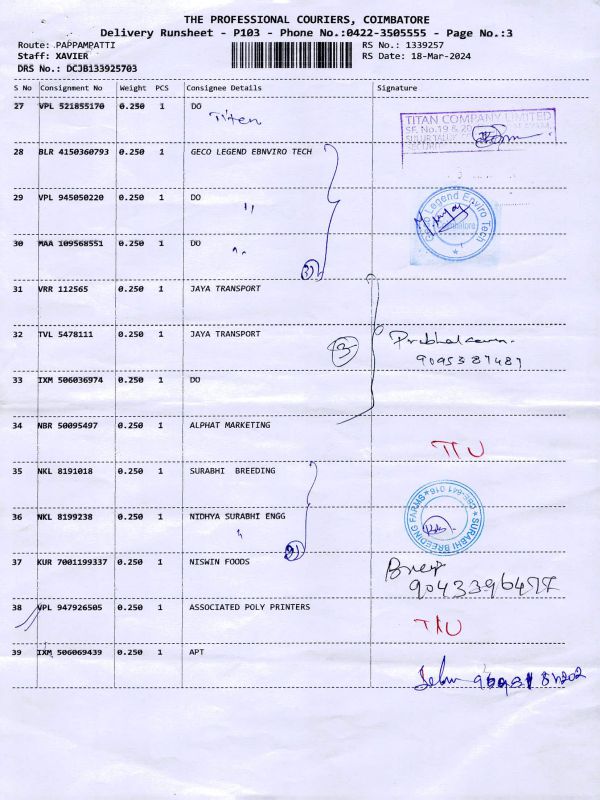 THE PROFESSIONAL COURIERS, COIMBATORE
Delivery Runsheet - P103 - Phone No.:0422-3505555 - Page No.:3
Route: PAPPAMPATTI RS No.: 1339257
Staff: XAVIER RS Date: 18-Mar-2024
DRS No.: DCJB133925703
S No Consignment No Weight PCS Consignee Details Signature
27 VPL 521855170 0.250 1 DO
Titen
TITAN COMPANY LIMITED
SF. No.19 & 20
28 BLR 4150360793 0.250 1 GECO LEGEND EBNVIRO TECH
29 VPL 945050220 0.250 1 DO
"
Legend Enviro Tech
30 MAA 109568551 0.250 1 DO
"
3
31 VRR 112565 0.250 1 JAYA TRANSPORT
32 TVL 5478111 0.250 1 JAYA TRANSPORT
3
Prabhakaran
9095387487
33 IXM 506036974 0.250 1 DO
34 NBR 50095497 0.250 1 ALPHAT MARKETING
35 NKL 8191018 0.250 1 SURABHI BREEDING
SURABHI BREEDING FARMS
36 NKL 8199238 0.250 1 NIDHYA SURABHI ENGG
37 KUR 7001199337 0.250 1 NISWIN FOODS
9043396477
38 VPL 947926505 0.250 1 ASSOCIATED POLY PRINTERS
39 IXM 506069439 0.250 1 APT